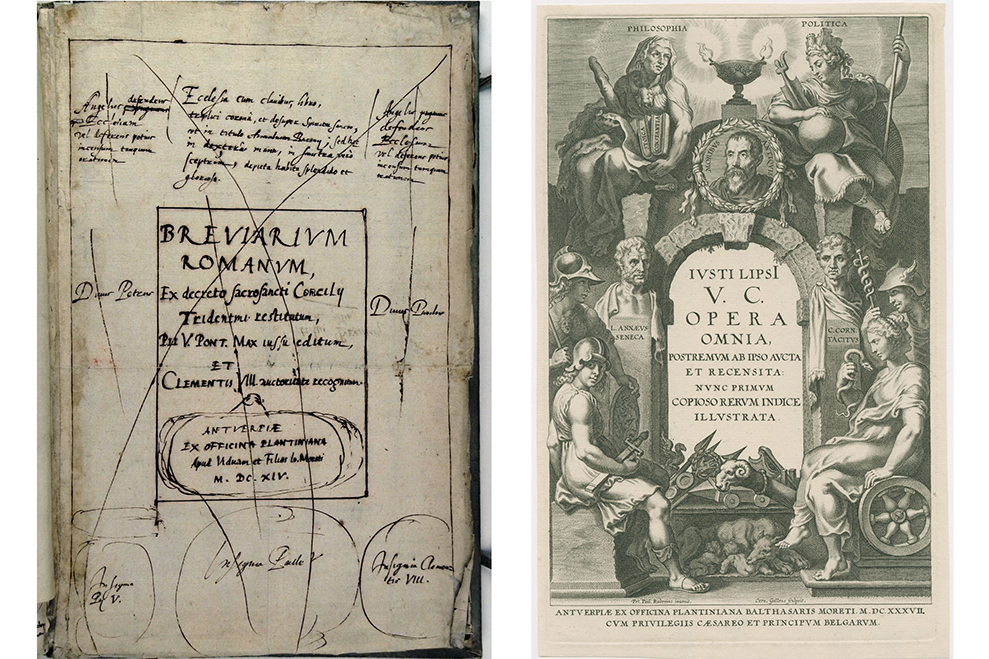 Ecclesia cum clavibus, libro,
triplici corona, et desuper Spiritu sancto,
ut in titulo Annalium Baronij; sed hic
in dextera manu, in sinistra vero
sceptrum, depicta habitu splendido et
glorioso.
Angelus defendens
Ecclesiam
vel deferens potius
incensum tanquam
orationem
Angelus
defendens
Ecclesiam
vel deferens potius
incensum tanquam
orationem
Divus Petrus
Divus Paulus
BREVIARIVM
ROMANVM,
Ex decreto sacrosancti Concilij
Tridentini restitutum,
PII V. PONT. MAX iussu editum,
ET
CLEMENTIS VIII. auctoritate recognitum
ANTVERPIÆ
EX OFFICINA PLANTINIANA
Apud Viduam et Filios Io. Moreti
M. DC. XIV.
Insignia
Pij V.
Insignia Pauli V
Insignia Clemen-
tis VIII.
PHILOSOPHIA
POLITICA
L. ANNÆVS
SENECA
C. CORN.
TACITVS
IVSTI LIPSI
V. C.
OPERA
OMNIA,
POSTREMVM AB IPSO AVCTA
ET RECENSITA:
NVNC PRIMVM
COPIOSO RERVM INDICE
ILLVSTRATA.
Pet. Paul. Rubenius invenit.
Corn. Galleus sculpsit.
ANTVERPIÆ EX OFFICINA PLANTINIANA BALTHASARIS MORETI. M. DC. XXXVII.
CVM PRIVILEGIIS CÆSAREO ET PRINCIPVM BELGARVM.